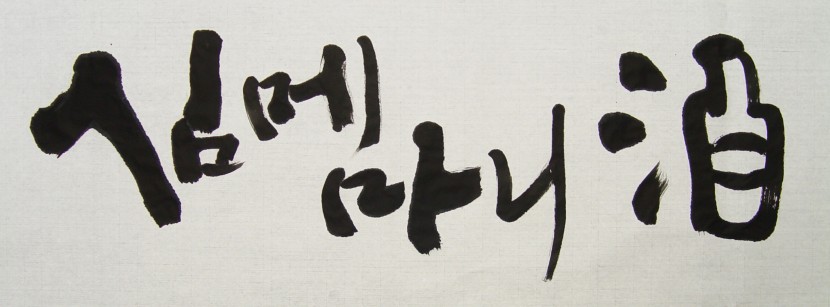 심메마니酒